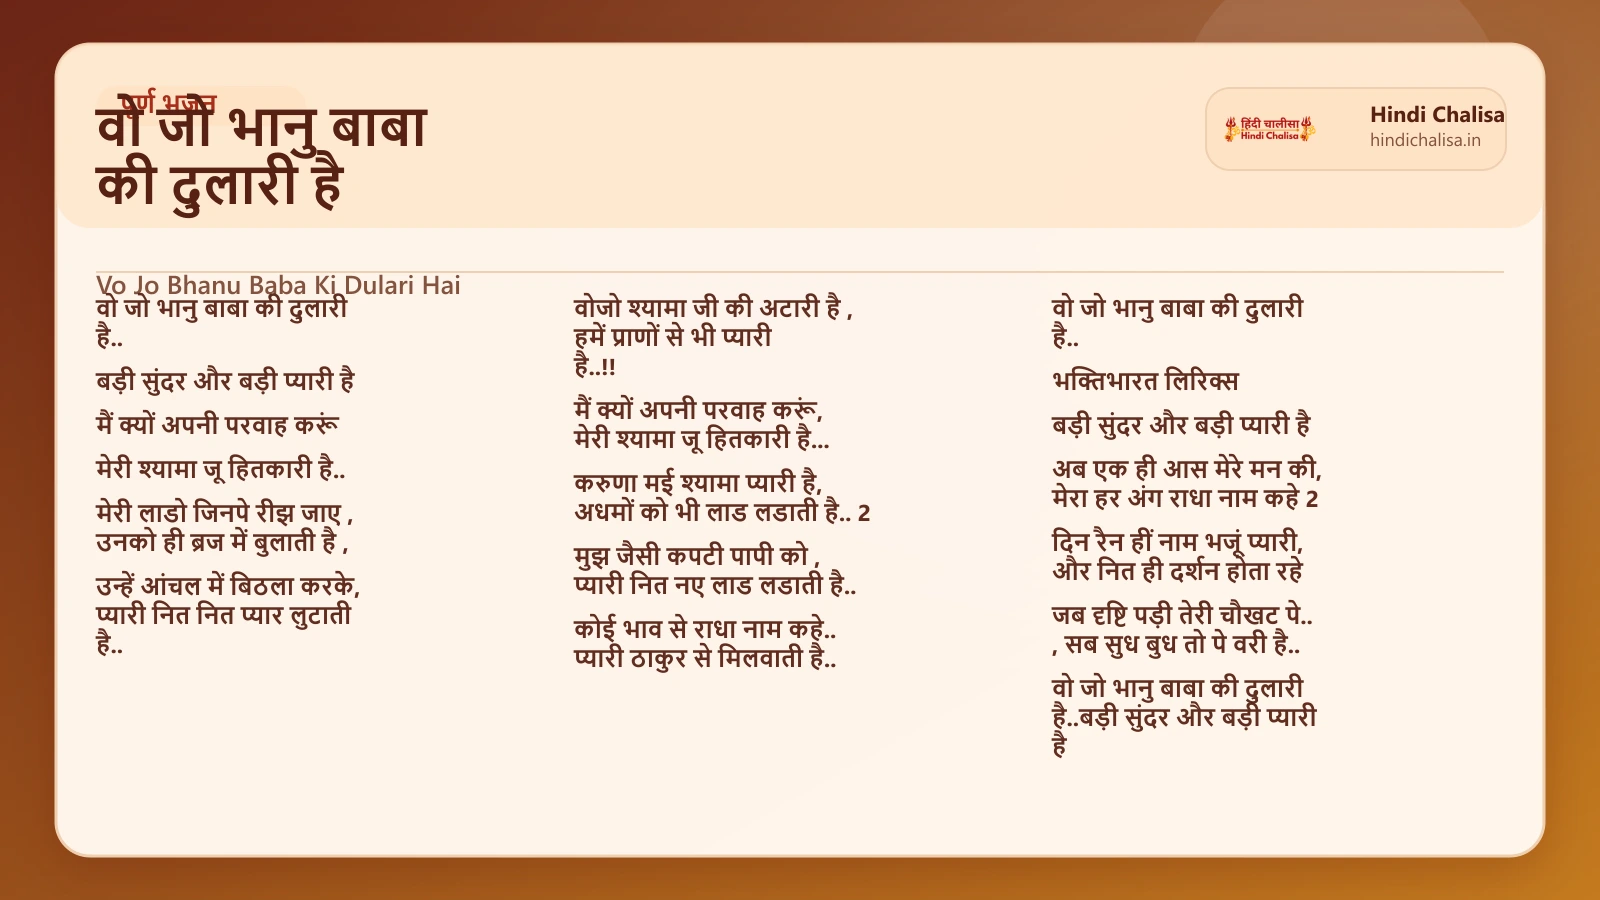 पूर्ण भजन
वो जो भानु बाबा
की दुलारी है
हिंदी चालीसा
Hindi Chalisa
Hindi Chalisa
hindichalisa.in
Vo Jo Bhanu Baba Ki Dulari Hai
वो जो भानु बाबा की दुलारी
है..
बड़ी सुंदर और बड़ी प्यारी है
मैं क्यों अपनी परवाह करूं
मेरी श्यामा जू हितकारी है..
मेरी लाडो जिनपे रीझ जाए ,
उनको ही ब्रज में बुलाती है ,
उन्हें आंचल में बिठला करके,
प्यारी नित नित प्यार लुटाती
है..
वोजो श्यामा जी की अटारी है ,
हमें प्राणों से भी प्यारी
है..!!
मैं क्यों अपनी परवाह करूं,
मेरी श्यामा जू हितकारी है...
करुणा मई श्यामा प्यारी है,
अधमों को भी लाड लडाती है.. 2
मुझ जैसी कपटी पापी को ,
प्यारी नित नए लाड लडाती है..
कोई भाव से राधा नाम कहे..
प्यारी ठाकुर से मिलवाती है..
वो जो भानु बाबा की दुलारी
है..
भक्तिभारत लिरिक्स
बड़ी सुंदर और बड़ी प्यारी है
अब एक ही आस मेरे मन की,
मेरा हर अंग राधा नाम कहे 2
दिन रैन हीं नाम भजूं प्यारी,
और नित ही दर्शन होता रहे
जब दृष्टि पड़ी तेरी चौखट पे..
, सब सुध बुध तो पे वरी है..
वो जो भानु बाबा की दुलारी
है..बड़ी सुंदर और बड़ी प्यारी
है